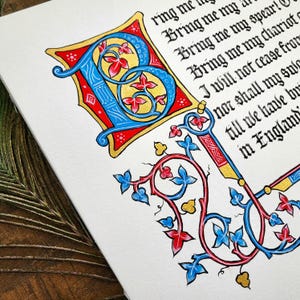 B
ring me my
Bring me my arr
Bring me my spear! O
Bring me my chariot
I will not cease fro
nor shall my sw
till we have bu
in England